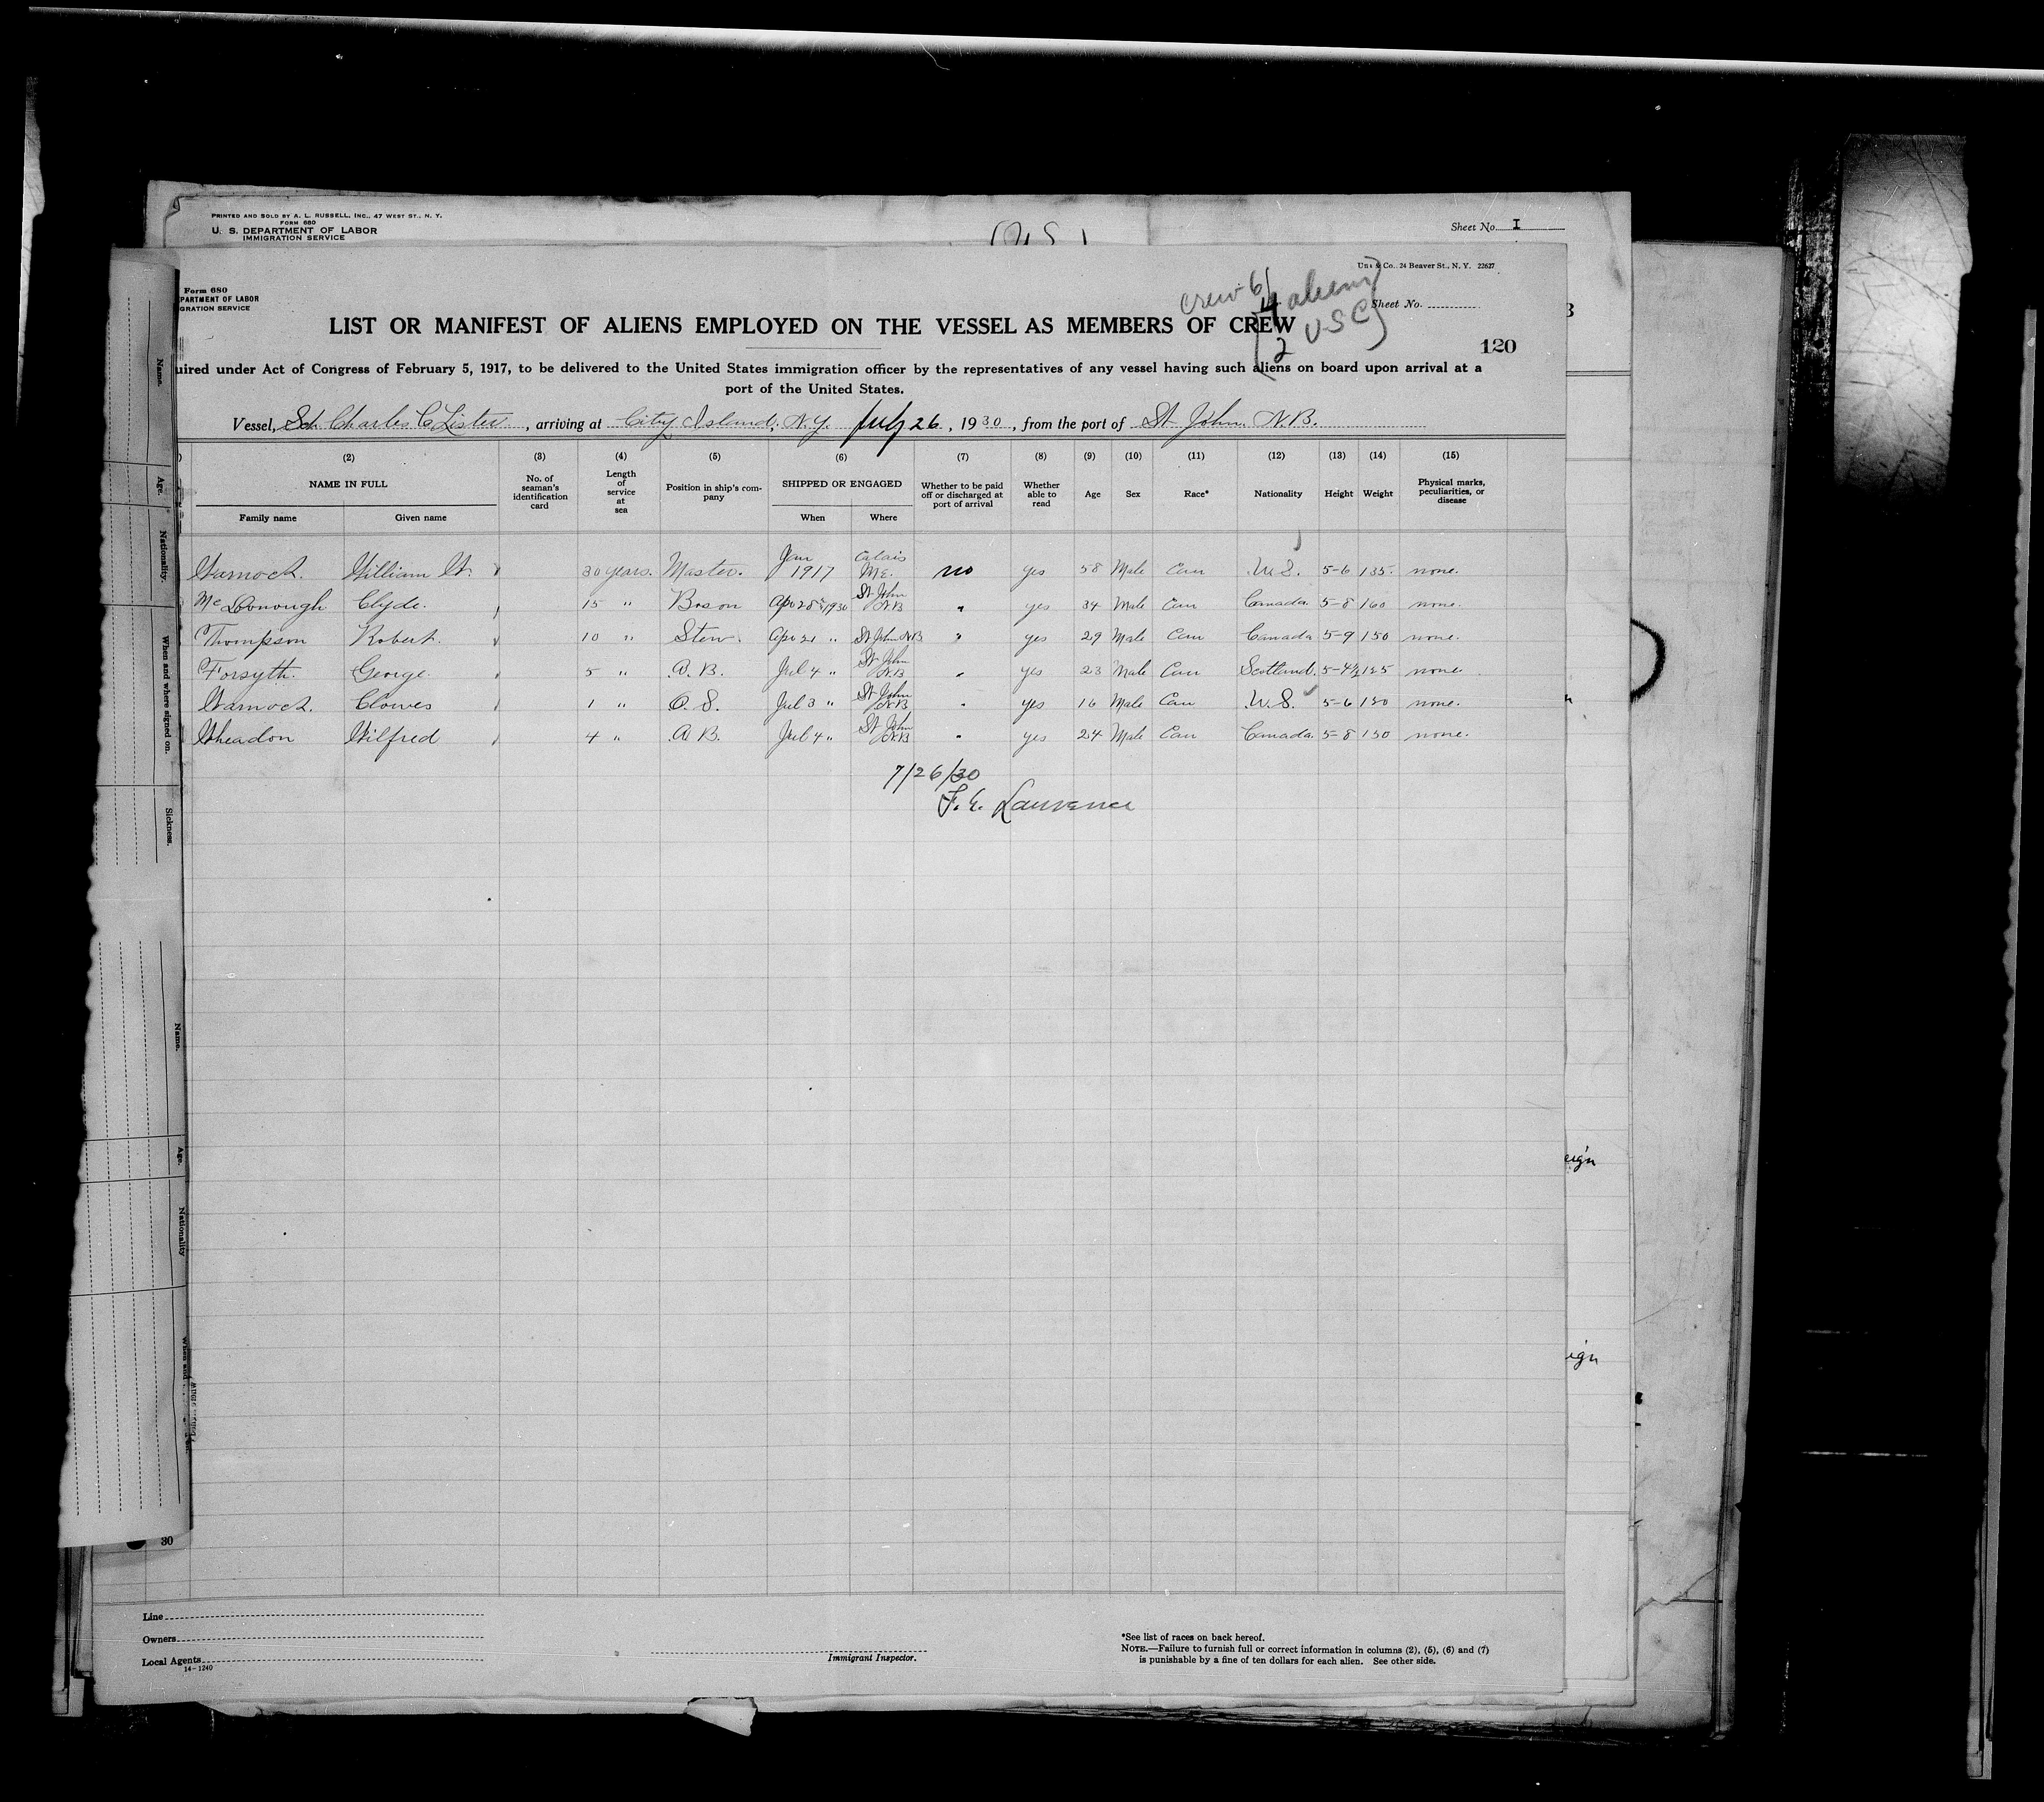 PRINTED AND SOLD BY A. L. RUSSELL, INC., 47 WEST ST., N. Y.
FORM 680
U. S. DEPARTMENT OF LABOR
IMMIGRATION SERVICE
Sheet No. I
24 Beaver St., N. Y. 22627
Form 680
PARTMENT OF LABOR
GRATION SERVICE
Sheet No.
crew 6
4 aliens
2 USC
LIST OR MANIFEST OF ALIENS EMPLOYED ON THE VESSEL AS MEMBERS OF CREW
120
uired under Act of Congress of February 5, 1917, to be delivered to the United States immigration officer by the representatives of any vessel having such aliens on board upon arrival at a
port of the United States.
Vessel, Sch Charles C Lister, arriving at City Island, N.Y. July 26, 1930, from the port of St John. N.B.
(2) (3) (4) (5) (6) (7) (8) (9) (10) (11) (12) (13) (14) (15)
NAME IN FULL
Family name Given name
No. of seaman's identification card
Length of service at sea
Position in ship's company
SHIPPED OR ENGAGED
When Where
Whether to be paid off or discharged at port of arrival
Whether able to read
Age
Sex
Race*
Nationality
Height
Weight
Physical marks, peculiarities, or disease
Warnock. William W. 30 years. Master. Jan 1917 Calais Me. no yes 58 Male Cau U.S. 5-6 135. none.
McDonough Clyde. 15 " Boson Apr 28th 1930 St John NB " yes 34 Male Cau Canada. 5-8 160 none.
Thompson Robert. 10 " Stew. Apr 21 " St John NB " yes 29 Male Cau Canada 5-9 150 none.
Forsyth. George. 5 " A.B. Jul 4 " St John N.B " yes 23 Male Cau Scotland. 5-4½ 125 none.
Warnock. Clowes 1 " O.S. Jul 3 " St John N.B " yes 16 Male Cau U.S. 5-6 130 none.
Wheadon Wilfred 4 " A.B. Jul 4 " St John N.B " yes 24 Male Cau Canada. 5-8 150 none.
7/26/30
F. E. Lawrence
Name.
Age.
Nationality.
When and where signed on.
Sickness.
Name.
Age.
Nationality
30
eign
ign
Line
Owners
Local Agents
14-1240
Immigrant Inspector.
*See list of races on back hereof.
NOTE.—Failure to furnish full or correct information in columns (2), (5), (6) and (7)
is punishable by a fine of ten dollars for each alien. See other side.